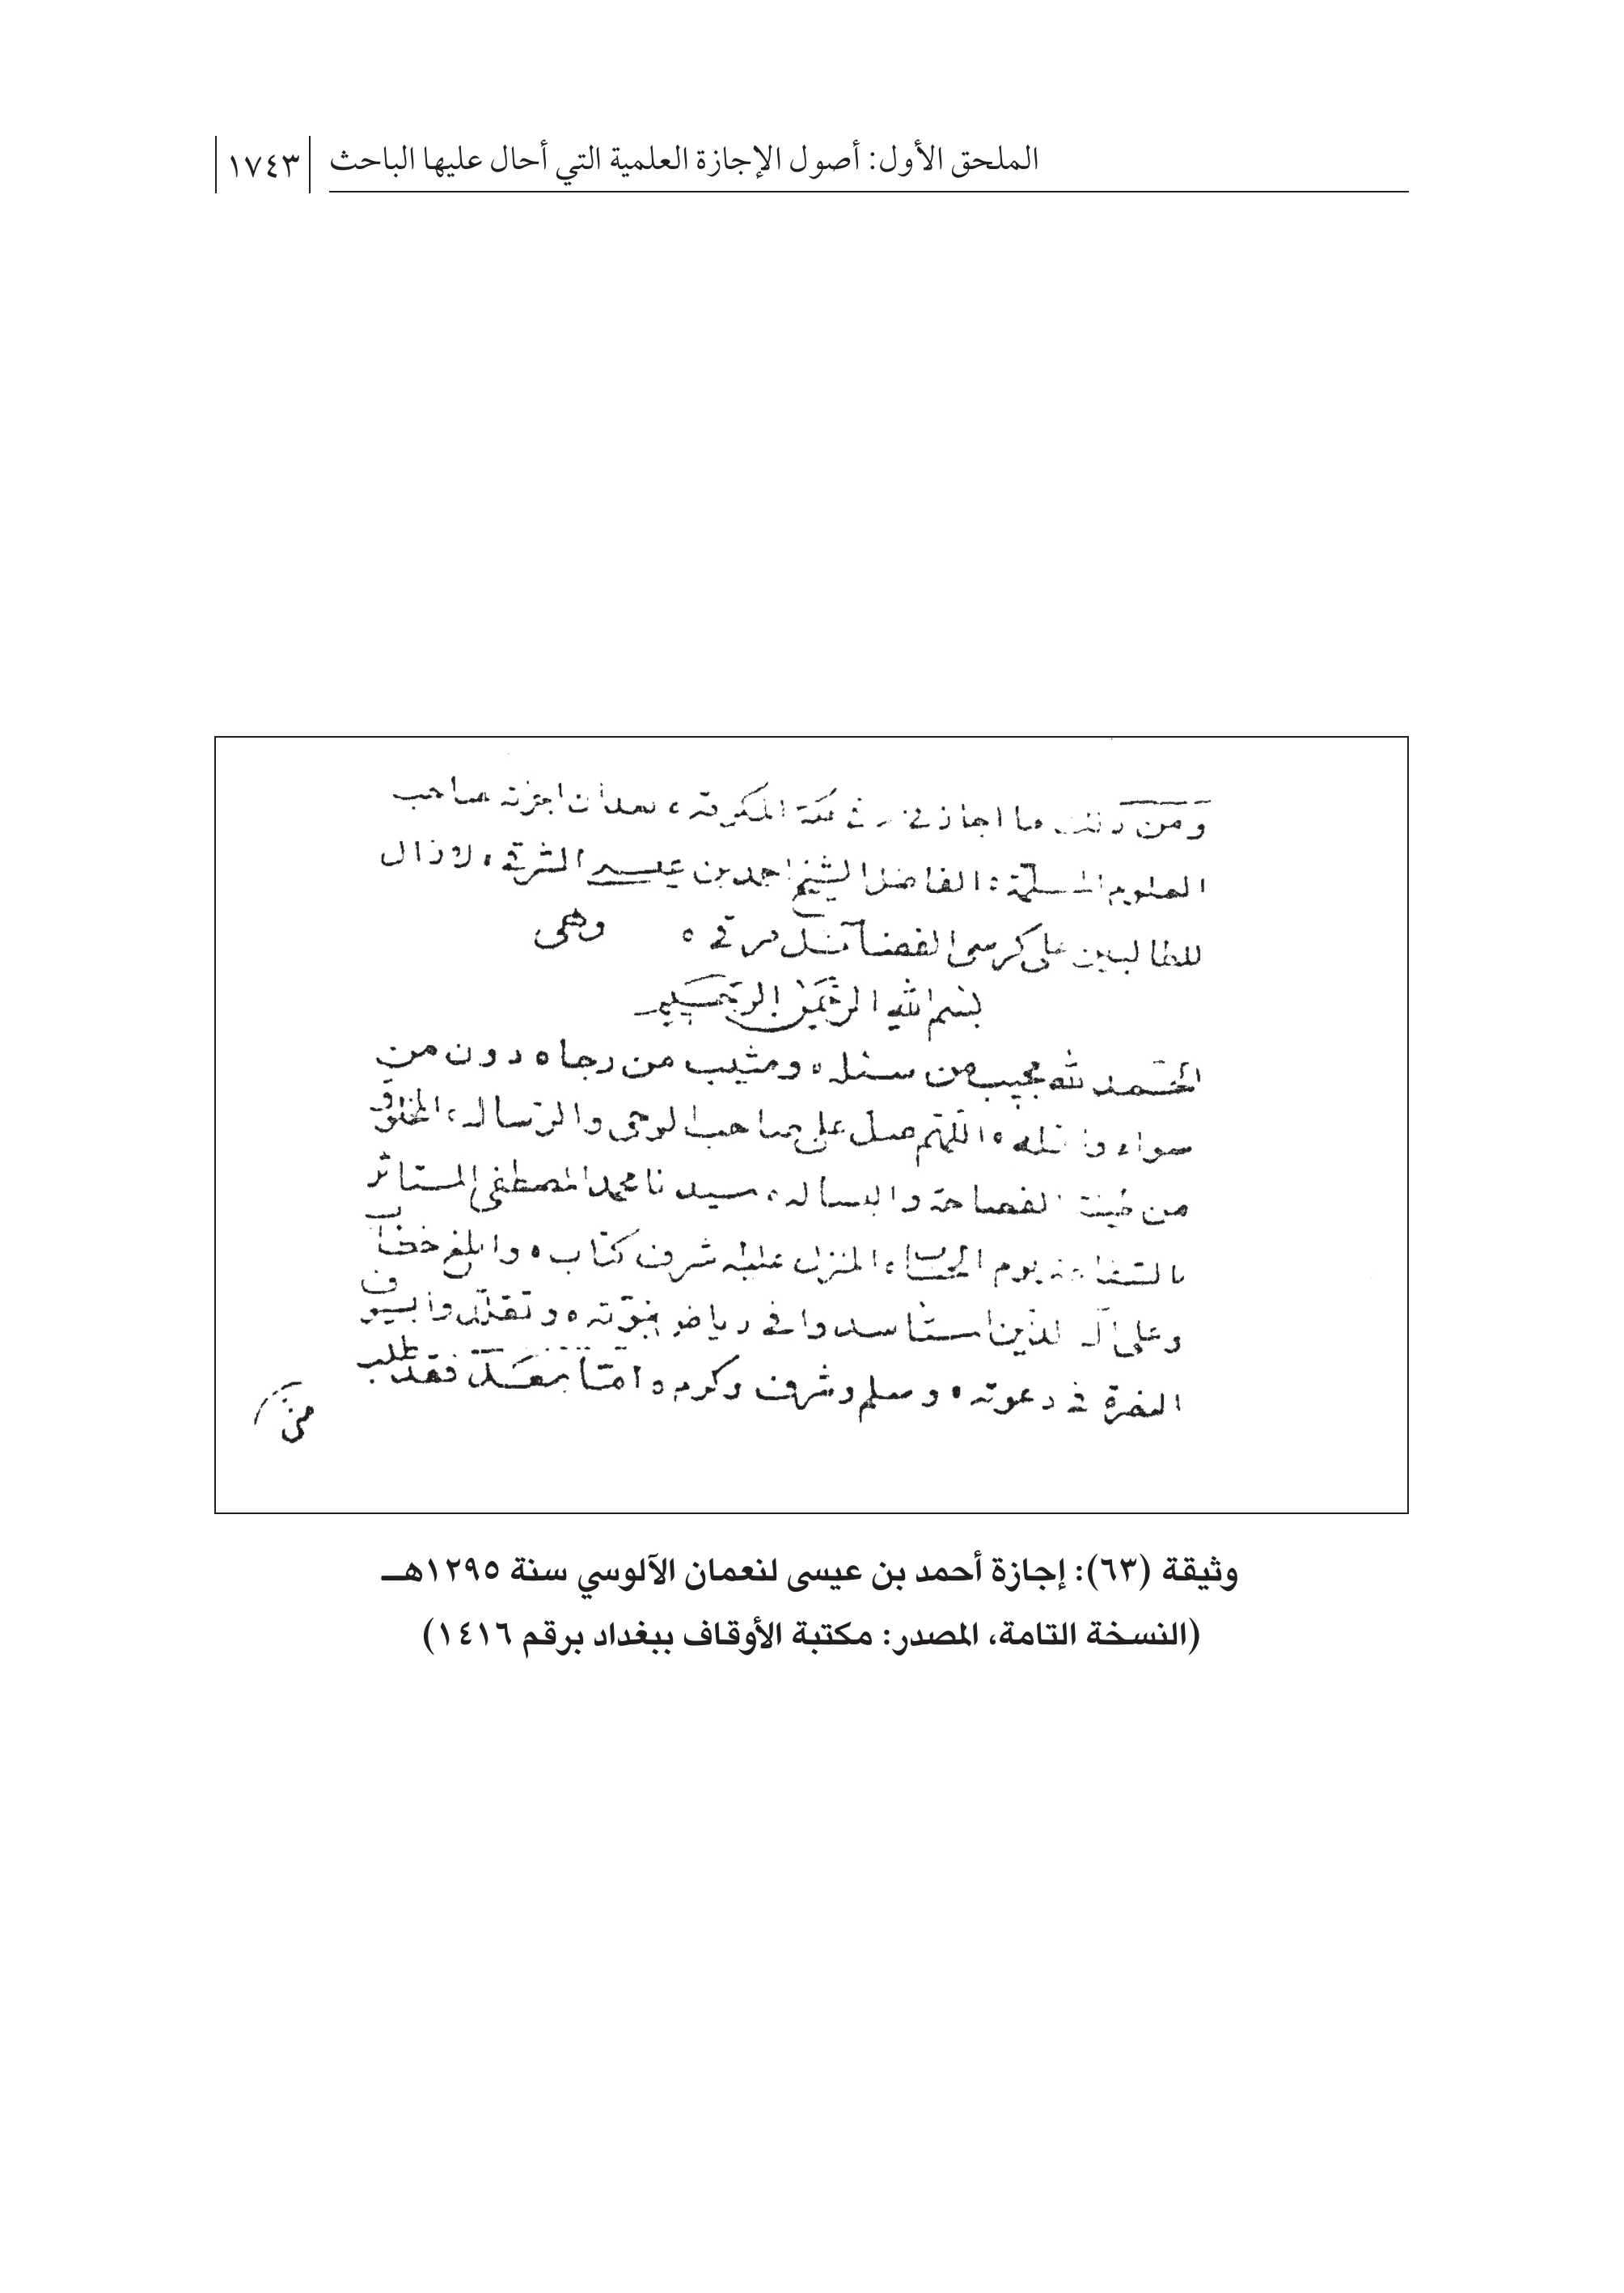 الملحق الأول: أصول الإجازة العلمية التي أحال عليها الباحث ١٧٤٣
ومن ذلك ما اجازني في مكة المكرمة، بعد أن اجزته صاحب
العلوم الفاضل الشيخ احمد بن عيسى الشرقي، لا زال
للطالبين على كرسي الفضائل مرقي ٥ وهي
بسم الله الرحمن الرحيم
الحمد لله مجيب من سئله ومثيب من رجاه دون من
سواه ٥ اللهم صل على صاحب الوحي والرساله، المخلوق
من طينة الفصاحة والبساله، سيدنا محمد المصطفى المستاثر
بالشفاعة يوم الحساب، المنزل عليه شرف كتاب ٥ وابلغ خطاب
وعلى آله الذين استاسدوا في رياض نبوته ٥ وتقلدوا بسيوف
النصرة في دعوته ٥ وسلم وشرف وكرم ٥ امّا بعد فقد طلب
مني
وثيقة (٦٣): إجازة أحمد بن عيسى لنعمان الآلوسي سنة ١٢٩٥هـ
(النسخة التامة، المصدر: مكتبة الأوقاف ببغداد برقم ١٤١٦)